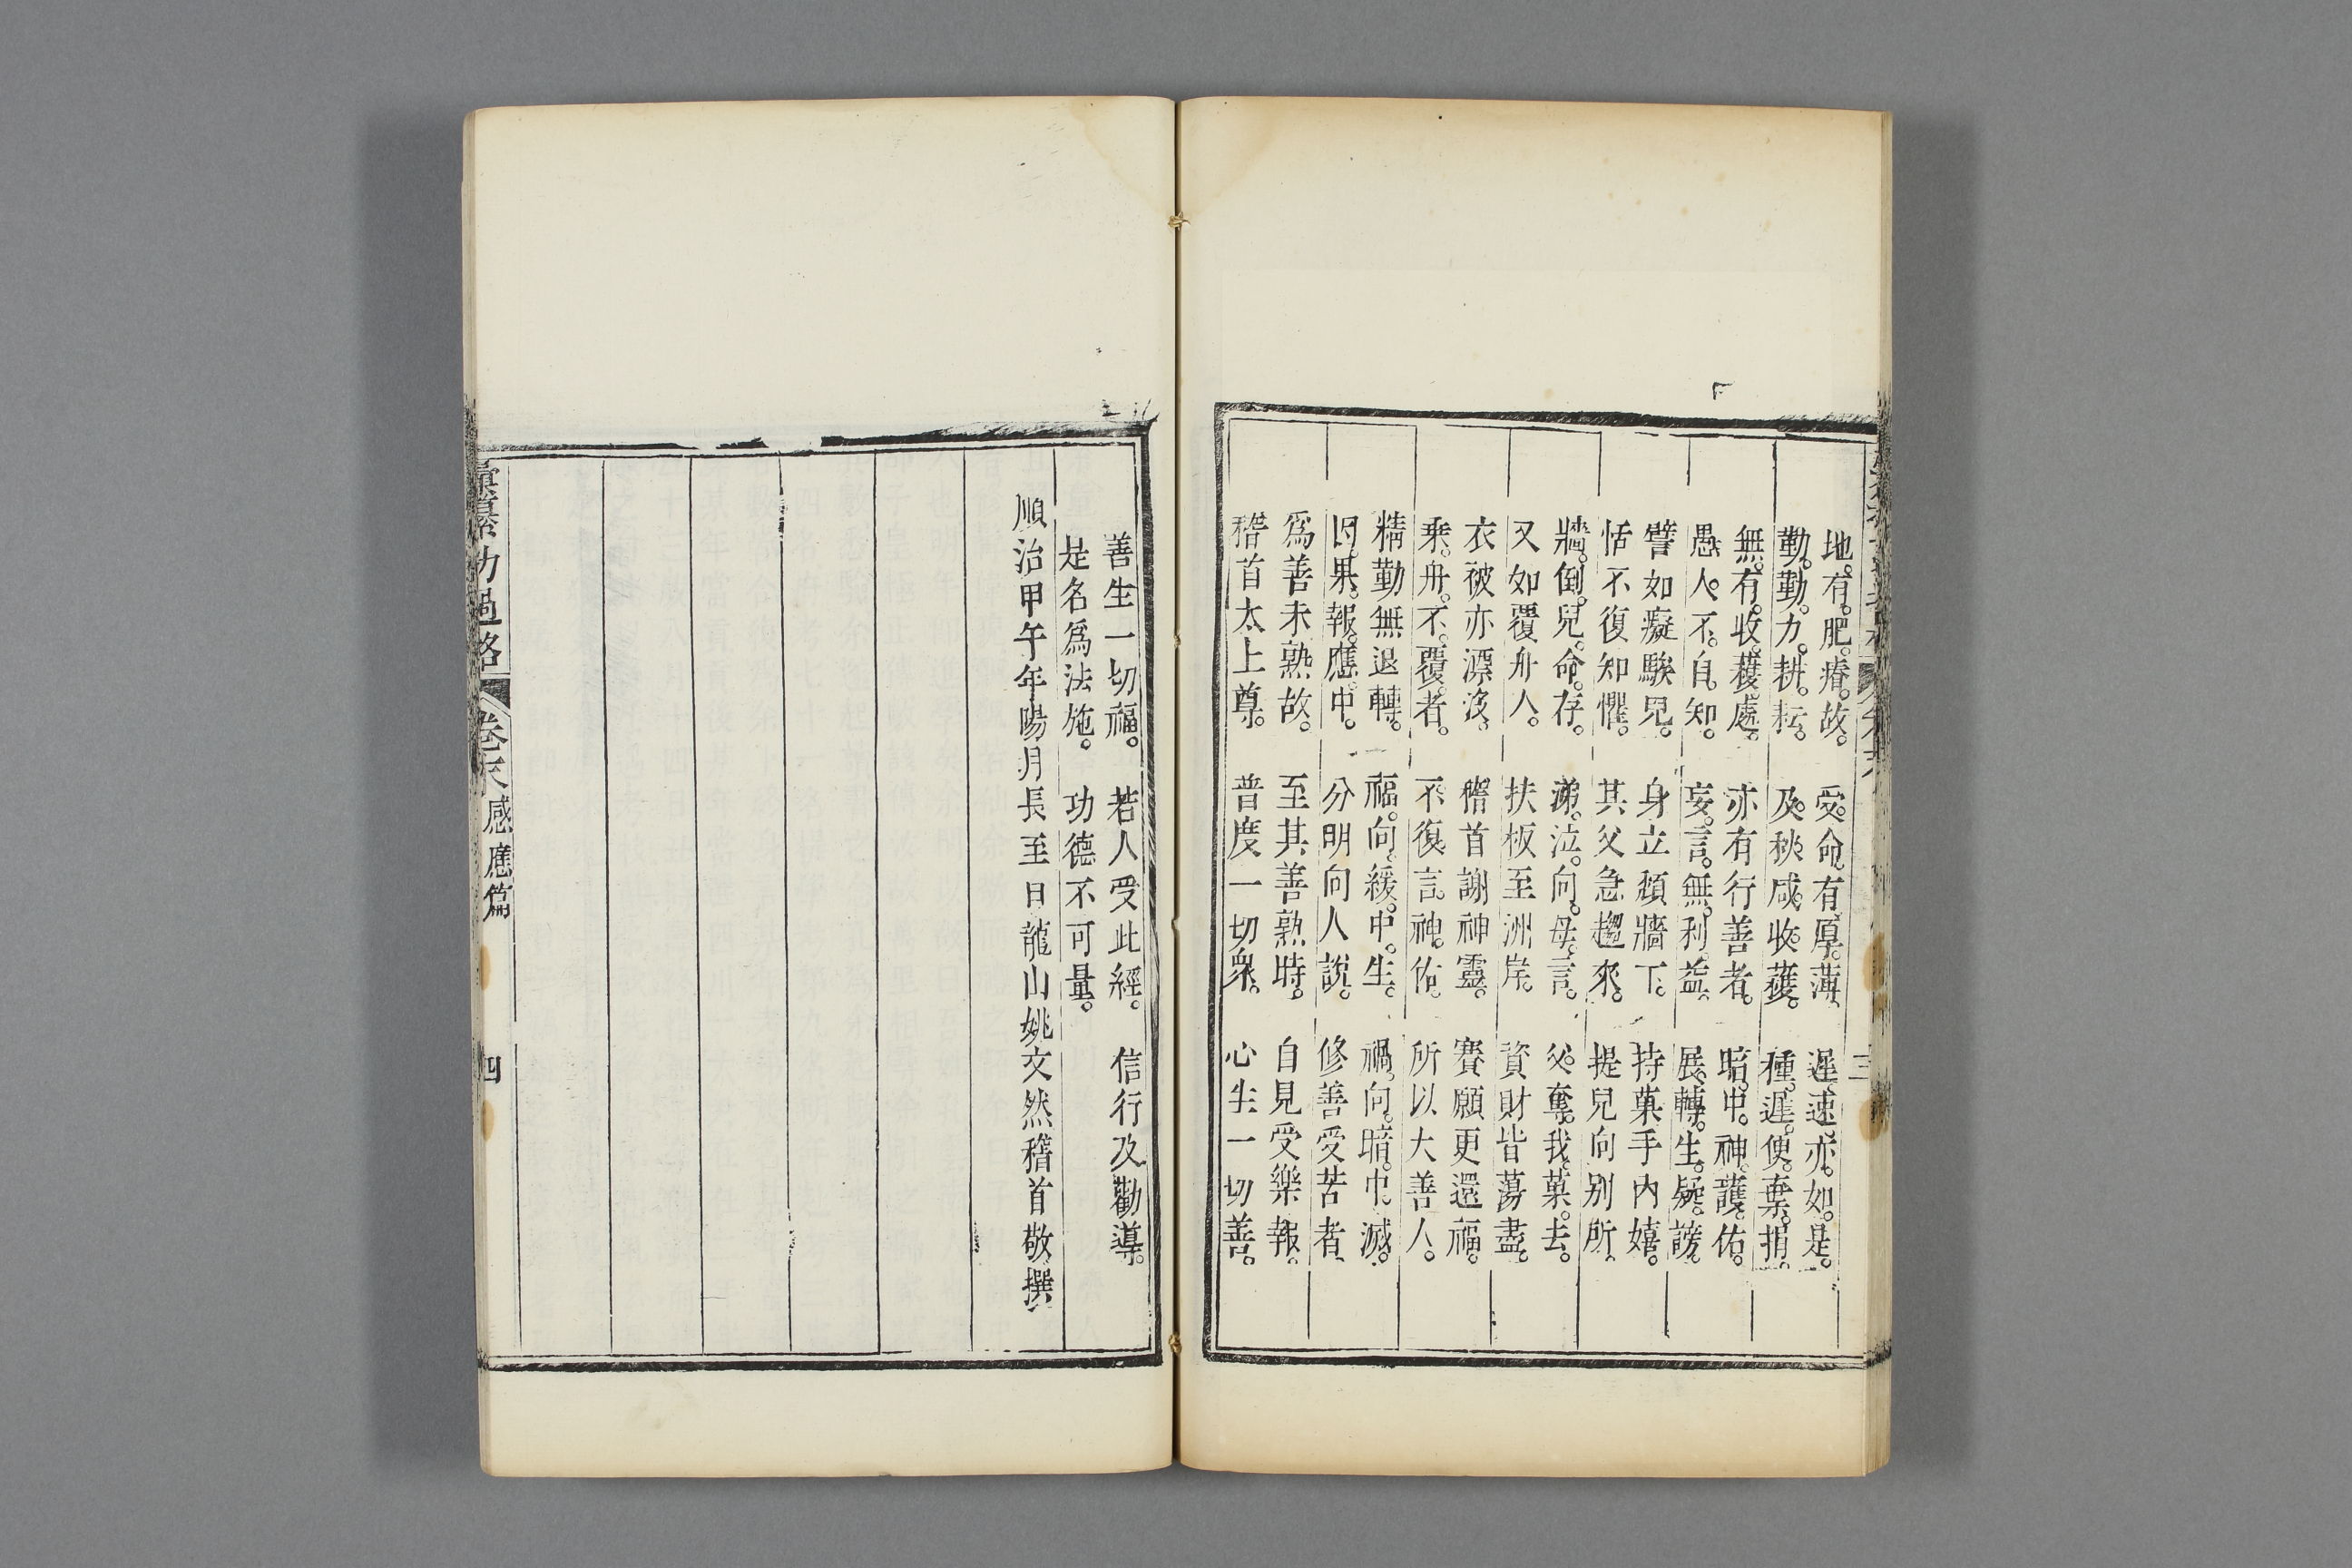 地。有。肥。瘠。故。　受。命。有。厚。薄。　遲。速。亦。如。是。
勤。勤。力。耕。耘。　及。秋。咸。收。穫。　種。遲。便。棄。捐。
無。有。收。穫。處。　亦有行善者。　暗。中。神。護。佑。
愚。人。不。自。知。　妄。言。無。利。益。　展。轉。生。疑。謗。
譬如癡騃兒。　身立頹牆下。　持菓手內嬉。
恬不復知懼。　其父急趨來。　提兒向別所。
牆。倒。兒。命。存。　涕。泣。向。母。言。　父。奪。我。菓。去。
又如覆舟人。　扶板至洲岸。　資財皆蕩盡。
衣被亦漂沒。　稽首謝神靈。　賽願更還福。
乘。舟。不。覆。者。　不。復。言。神。佑。　所以大善人。
精勤無退轉。　福。向。緩。中。生。　禍。向。暗。中。滅。
因。果。報。應。中。　分明向人說。　修善受苦者。
爲善未熟故。　至其善熟時。　自見受樂報。
稽首太上尊。　普度一切衆。　心生一切善。
三
善生一切福。　若人受此經。　信行及勸導。
是名爲法施。　功德不可量。
順治甲午年陽月長至日龍山姚文然稽首敬撰
彙纂功過格　卷末　感應篇　四